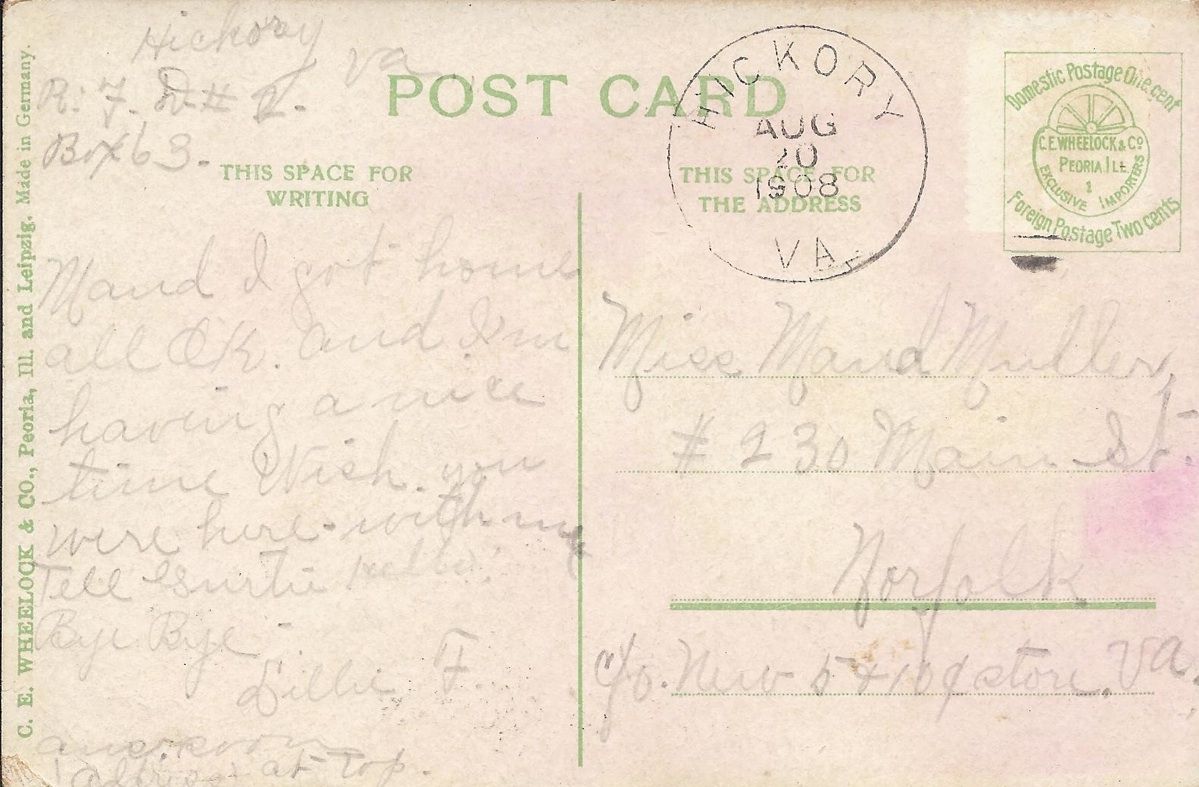 Hickory
Va
R. F. D # 2.
Box 63.
POST CARD
THIS SPACE FOR
WRITING
THIS SPACE FOR
THE ADDRESS
HICKORY
AUG
20
1908
VA
Domestic Postage One cent
C. E. WHEELOCK & Co
PEORIA, ILL
1
EXCLUSIVE IMPORTERS
Foreign Postage Two cents
C. E. WHEELOCK & CO., Peoria, Ill. and Leipzig. Made in Germany.
Maud I got home
all OK. and I'm
having a nice
time Wish you
were here with me
Tell Gurtie hello.
Bye Bye
Lillie F.
ans soon
Address at top.
Miss Maud Muller,
# 230 Main St.
Norfolk
c/o. New 5 & 10¢ store, Va.